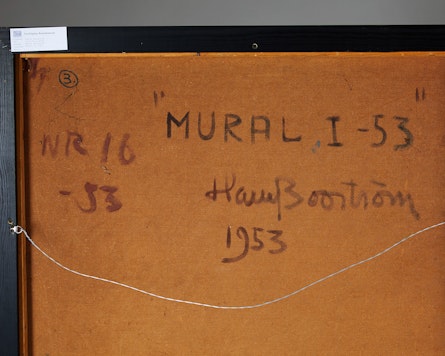 3.
"MURAL, I-53"
NR 16
-53
Hans Boström
1953